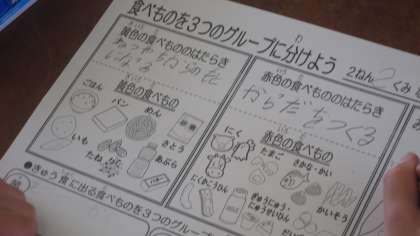 食べものを3つのグループに分けよう
2ねん2くみ
黄色の食べもののはたらき
黄色の食べもの
ごはん
パン
めん
いも
さとう
たね
あぶら
赤色の食べもののはたらき
からだをつくる
赤色の食べもの
にく
たまご
さかな・かい
にくかこうひん
ぎゅうにゅう・
にゅうせいひん
かいそう
●きゅう食に出る食べものを3つのグループ